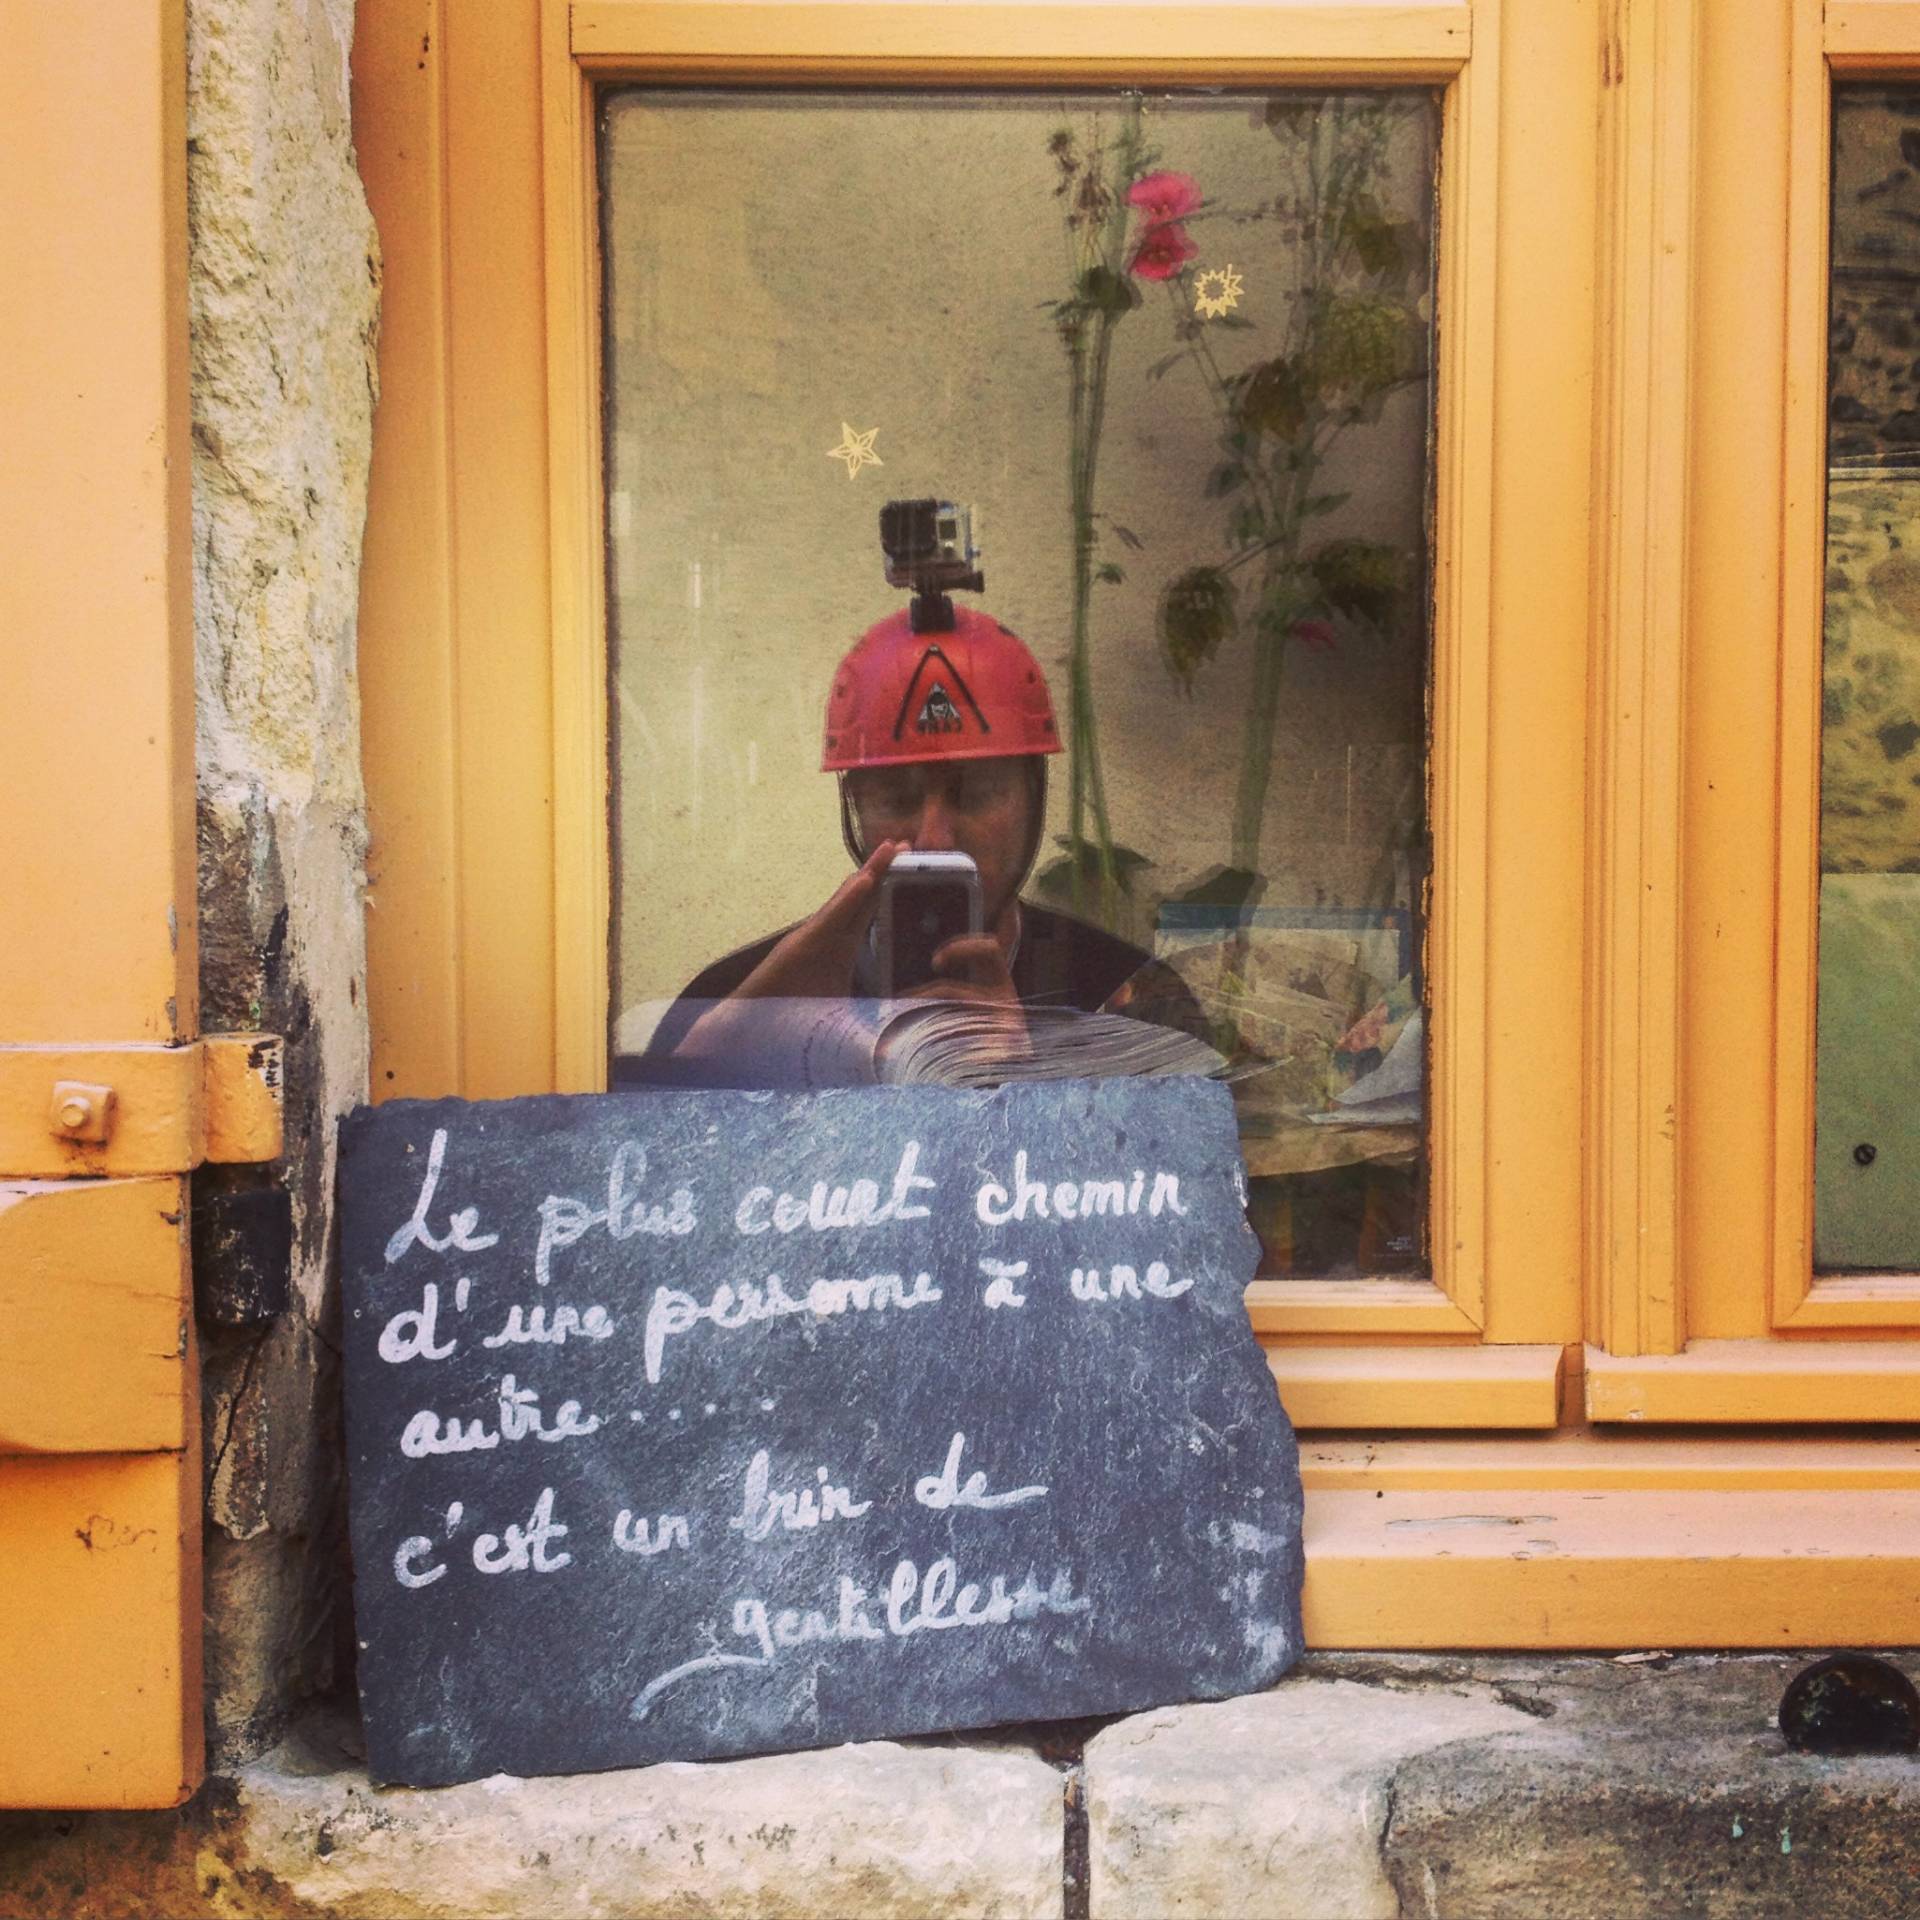 Le plus court chemin
d'une personne à une
autre.....
c'est un brin de
gentillesse